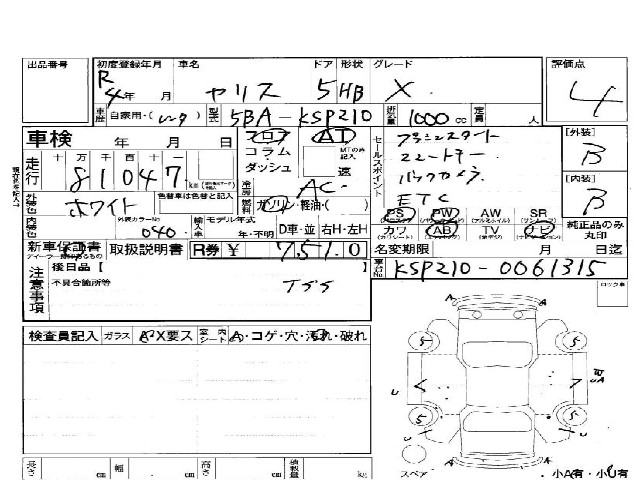 出品番号 初度登録年月 車名 ドア 形状 グレード 評価点
R4年 月 ヤリス 5 HB X 4
車歴 自家用・(レンタ) 型式 5BA-KSP210 排気量 1000cc 定員 人
車検 年 月 日 フロア AT セールスポイント プッシュスタート [外装]
コラム・ MTのみ記入 スマートキー B
走行 十 万 千 百 十 ダッシュ 速 バックカメラ [内装]
81047km 冷房 AC ETC B
外装色 ホワイト 色替車は色替と記入 燃料 ガソリン・軽油・( ) PS PW AW SR 純正品のみ丸印
内装色 外装カラーNo 040 輸入車 モデル年式 年・不明 D車・並 右H・左H カワ AB TV ナビ
新車保証書 取扱説明書 R券 ¥ 7,510 名変期限 月 日迄
注意事項 後日品【 】 車台No KSP210-0061315
不具合箇所等 ロック車
検査員記入 ガラス X要ス 室内シート A・コゲ・穴・汚れ・破れ
5 5
U U
W
UA
5 5
長さ cm 幅 cm 高さ cm 積載量 kg スペア 小A有・小U有